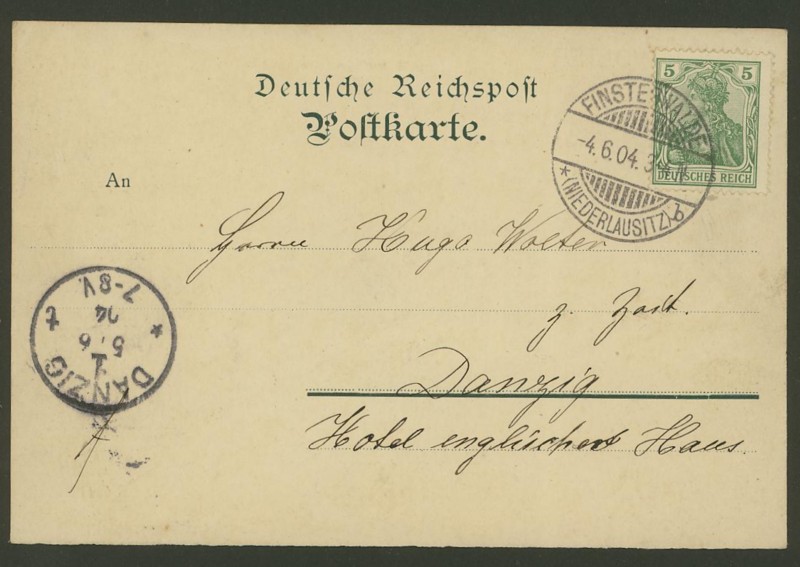 Deutsche Reichspost
Postkarte.
An
5 5
DEUTSCHES REICH
FINSTERWALDE
-4.6.04.3
* (NIEDERLAUSITZ) b
Herrn Hugo Wolter
z. Zeit.
Danzig
Hotel englischer Haus.
DANZIG
1
5.6
04
7-8V.